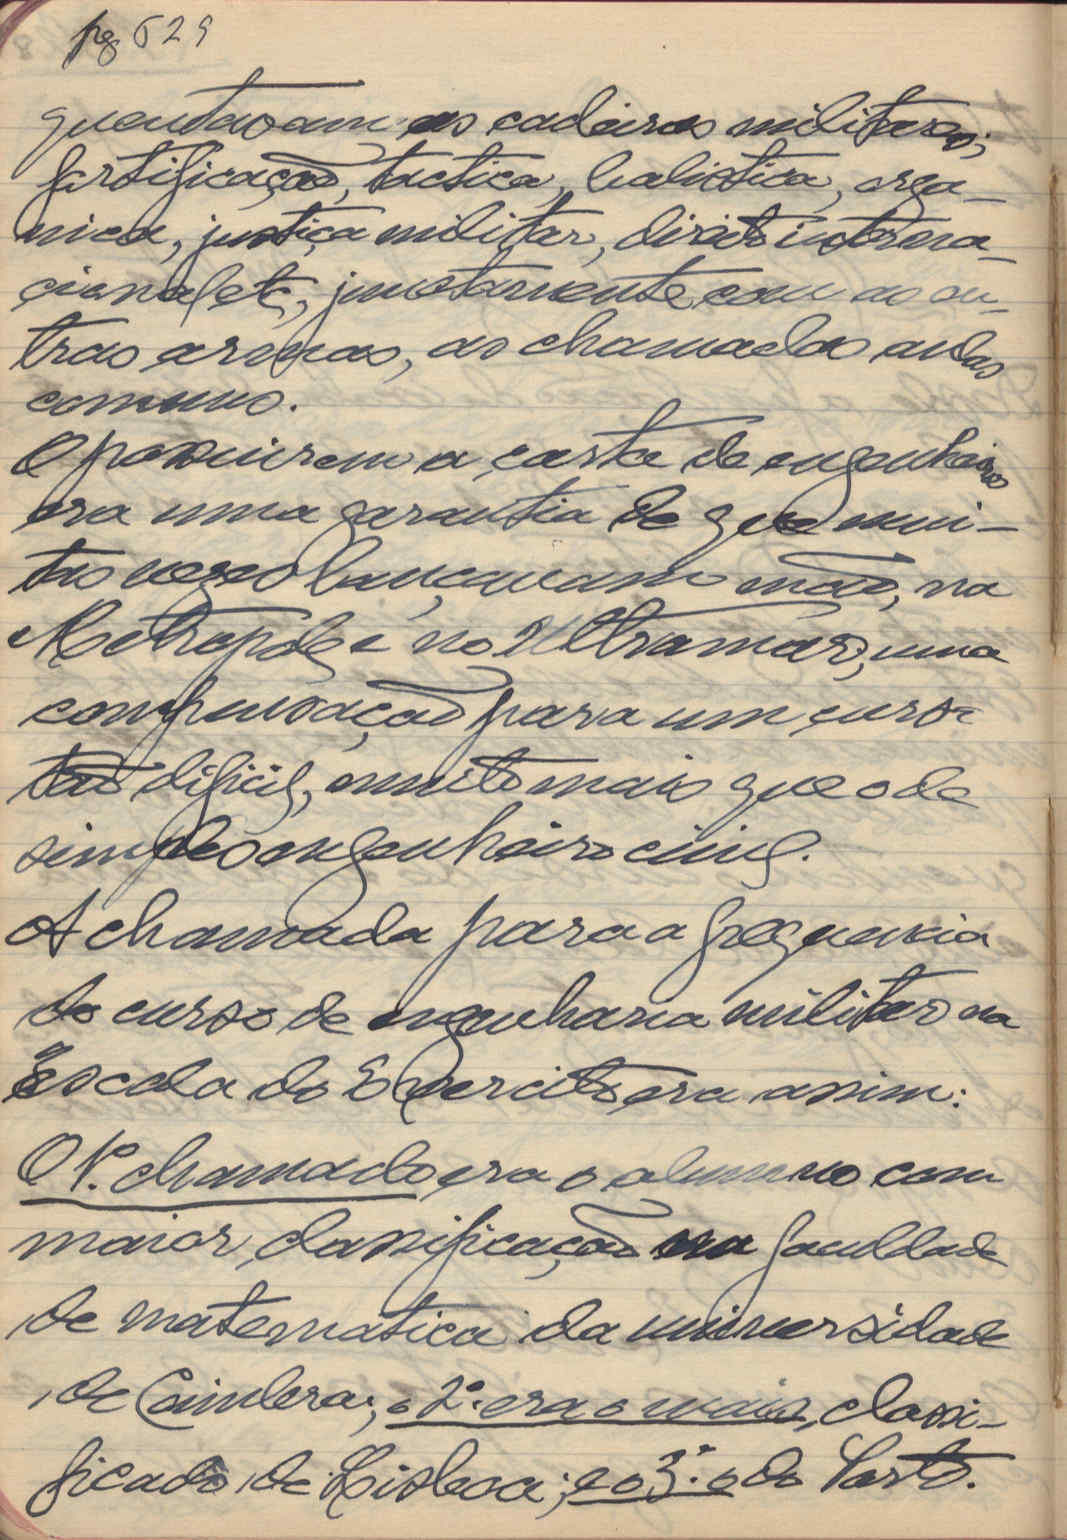 pg 629
quentavam as cadeiras militares;
fortificação, tactica, balistica, orga-
nica, justiça militar, direito interna-
cional etc, juntamente com as ou-
tras armas, as chamadas aulas
comuns.
O possuirem a carta de engenheiros
era uma garantia de que mui-
tas vezes lançavam mão, na
Metropole e no Ultramar, uma
compensação para um curso
tão dificil, muito mais que o de
simples engenheiro civil.
A chamada para a frequencia
do curso de engenharia militar na
Escola do Exercito era assim:
O 1º. chamado era o alumno com
maior classificação na faculdade
de matematica da universidade
de Coimbra; o 2º. era o mais classi-
ficado de Lisboa; e o 3º. o do Porto.